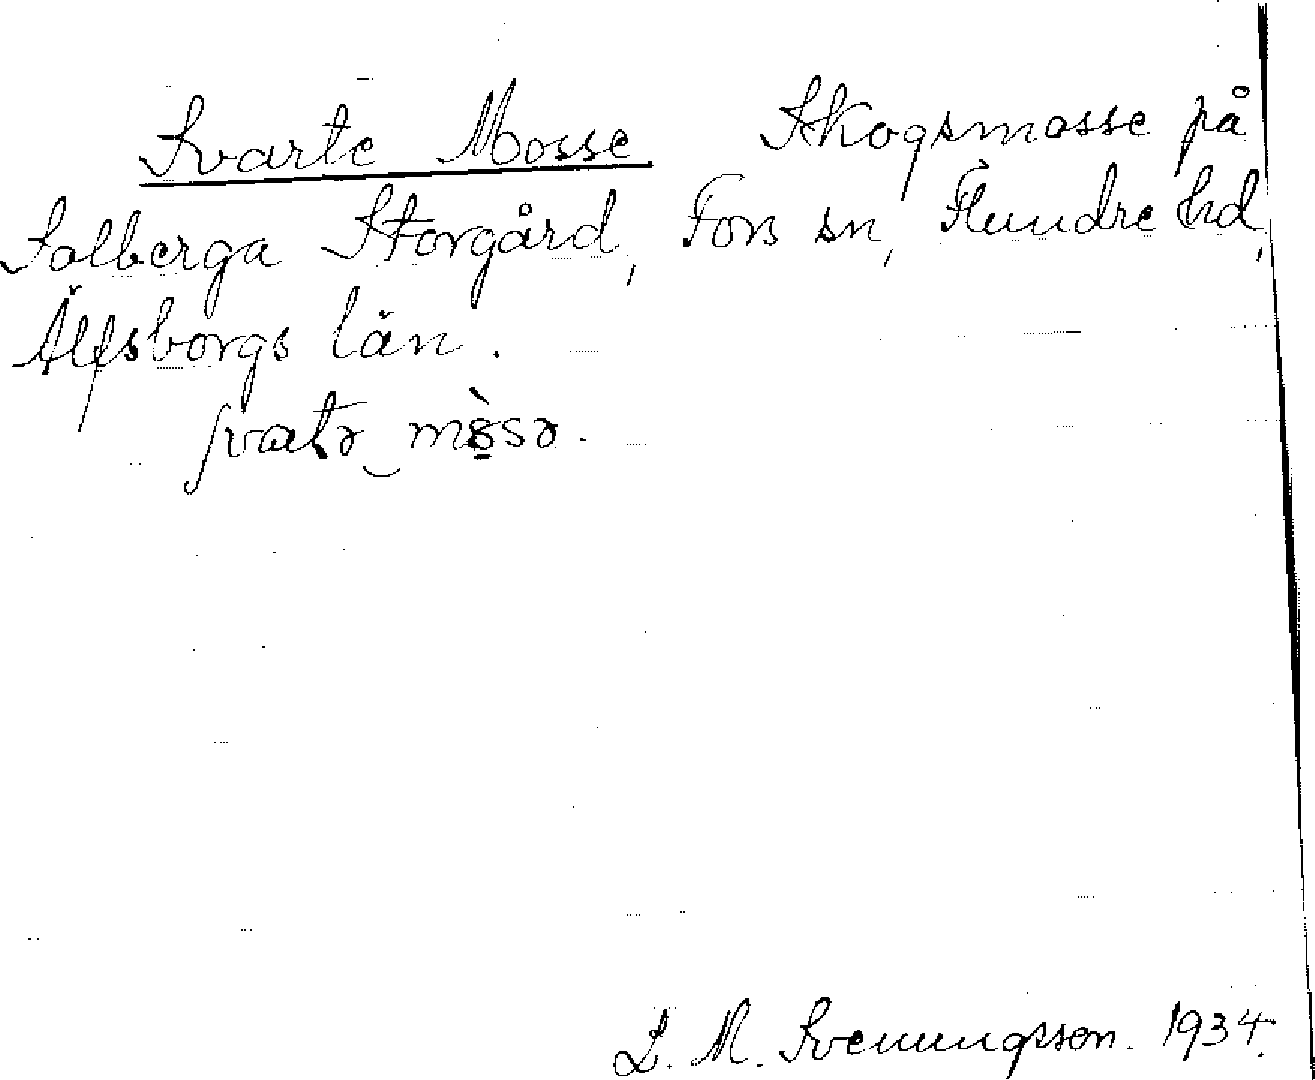 Svarte Mosse Skogsmosse på
Solberga Storgård, Fors sn, Flundre hd,
Älfsborgs län.
svatə mòsə.
L. M. Svenungsson. 1934.